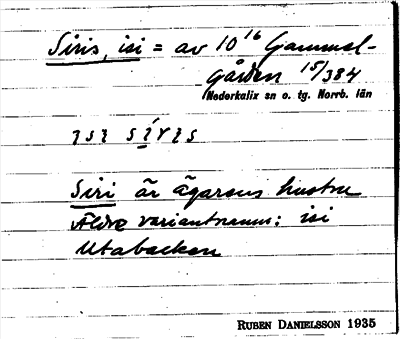 Siris, isi = av 10¹⁶ Gammel-
Gården 15/384
Nederkalix sn o. tg. Norrb. län
Siri är ägarens hustru
Äldre variantnamn: isi
Utabacken
RUBEN DANIELSSON 1935